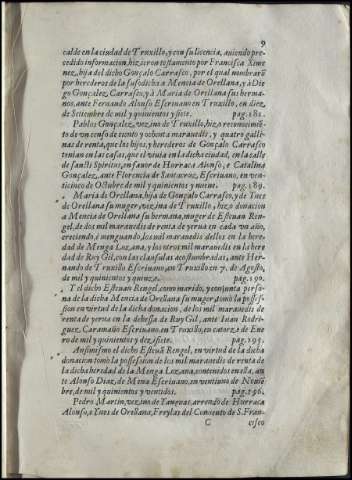 9
calde en la ciudad de Truxillo, y con su licencia, auiendo pre-
cedido informacion, hizieron testamento por Francisca Xime
nez, hija del dicho Gonçalo Carrasco, por el qual nombraron
por herederos de la susodicha a Mencia de Orellana, y à Die
go Gonçalez Carrasco, y à Maria de Orellana sus herma-
nos, ante Fernando Alonso Escriuano en Truxillo, en diez
de Setiembre de mil y quinientos y siete. pag. 181.
Pablos Gonçalez, vezino de Truxillo, hizo reconocimien
to de vn censo de ciento y ochenta marauedis, y quatro galli
nas de renta, que los hijos, y herederos de Gonçalo Carrasco
tenian en las casas, que el viuia en la dicha ciudad, en la calle
de Sancti Spiritus, en fauor de Horraca Alonso, e Catalina
Gonçalez, ante Florencio de Santacruz, Escriuano, en ven-
ticinco de Octubre de mil y quinientos y nueue. pag. 189.
Maria de Orellana, hija de Gonçalo Carrasco, y de Ynes
de Orellana su muger, vezina de Truxillo, hizo donacion
a Mencia de Orellana su hermana, muger de Esteuan Ren-
gel, de dos mil marauedis de renta de yerua en cada vn año,
creciendo, ò menguando, los mil marauedis dellos en la here-
dad de Menga Lozana, y los otros mil marauedis en la here
dad de Ruy Gil, con las clausulas acostumbradas, ante Her-
nando de Truxillo Escriuano, en Truxillo en 7. de Agosto,
de mil y quinientos y quinze. pag. 190.
Y el dicho Esteuan Rengel, como marido, y conjunta perso
na de la dicha Mencia de Orellana su muger, tomò la posses-
sion en virtud de la dicha donacion, de los mil marauedis de
renta de yerua en la dehessa de Ruy Gil, ante Iuan Rodri-
guez Caramaño Escriuano, en Truxillo, en catorze de Ene
ro de mil y quinientos y dez y siete. pag. 195.
Ansimismo el dicho Esteuã Rengel, en virtud de la dicha
donacion tomò la possession de los mil marauedis de renta de
la dicha heredad de la Menga Lozana, contenidos en ella, an
te Alonso Diaz, de Mena Escriuano, en ventiuno de Nouiẽ
bre, de mil y quinientos y ventidos. pag. 196.
Pedro Martin, vezino de Yanguas, arrendò de Horraca
Alonso, e Ynes de Orellana, Freylas del Conuento de S. Fran-
C cisco